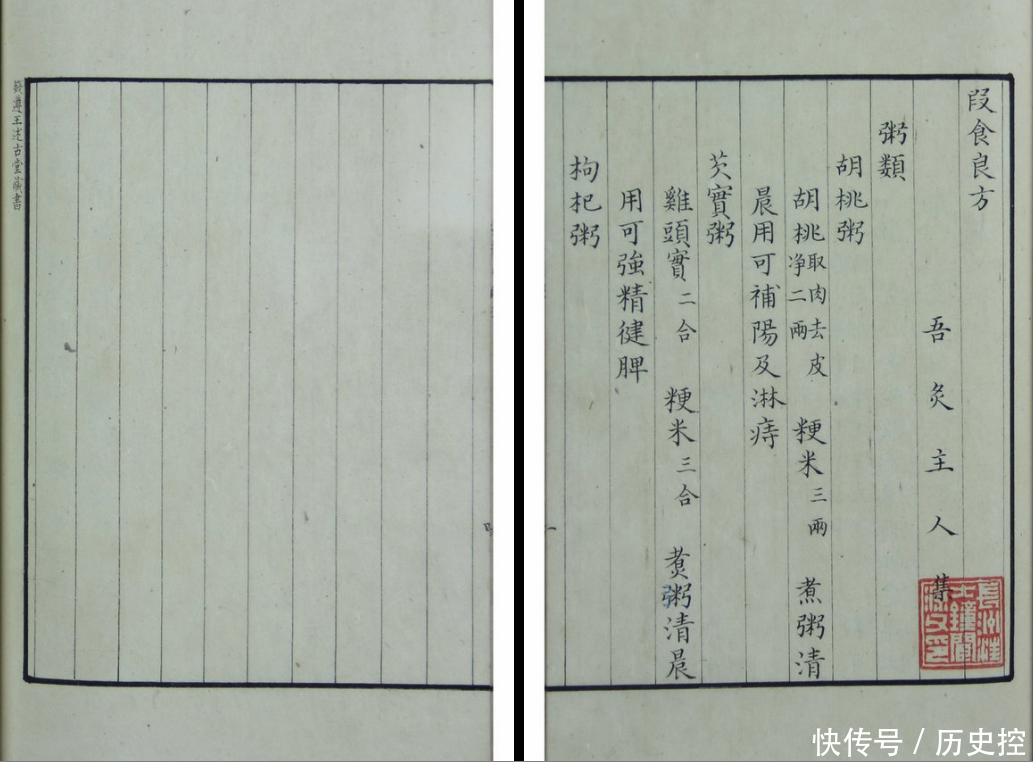 段食良方
吾炙主人集
粥類
胡桃粥
胡桃取肉去皮净二兩 粳米三兩 煮粥清
晨用可補陽及淋痔
芡實粥
雞頭實二合 粳米三合 煑粥清晨
用可強精健脾
枸杞粥
錢遵王述古堂藏書
快传号 / 历史控